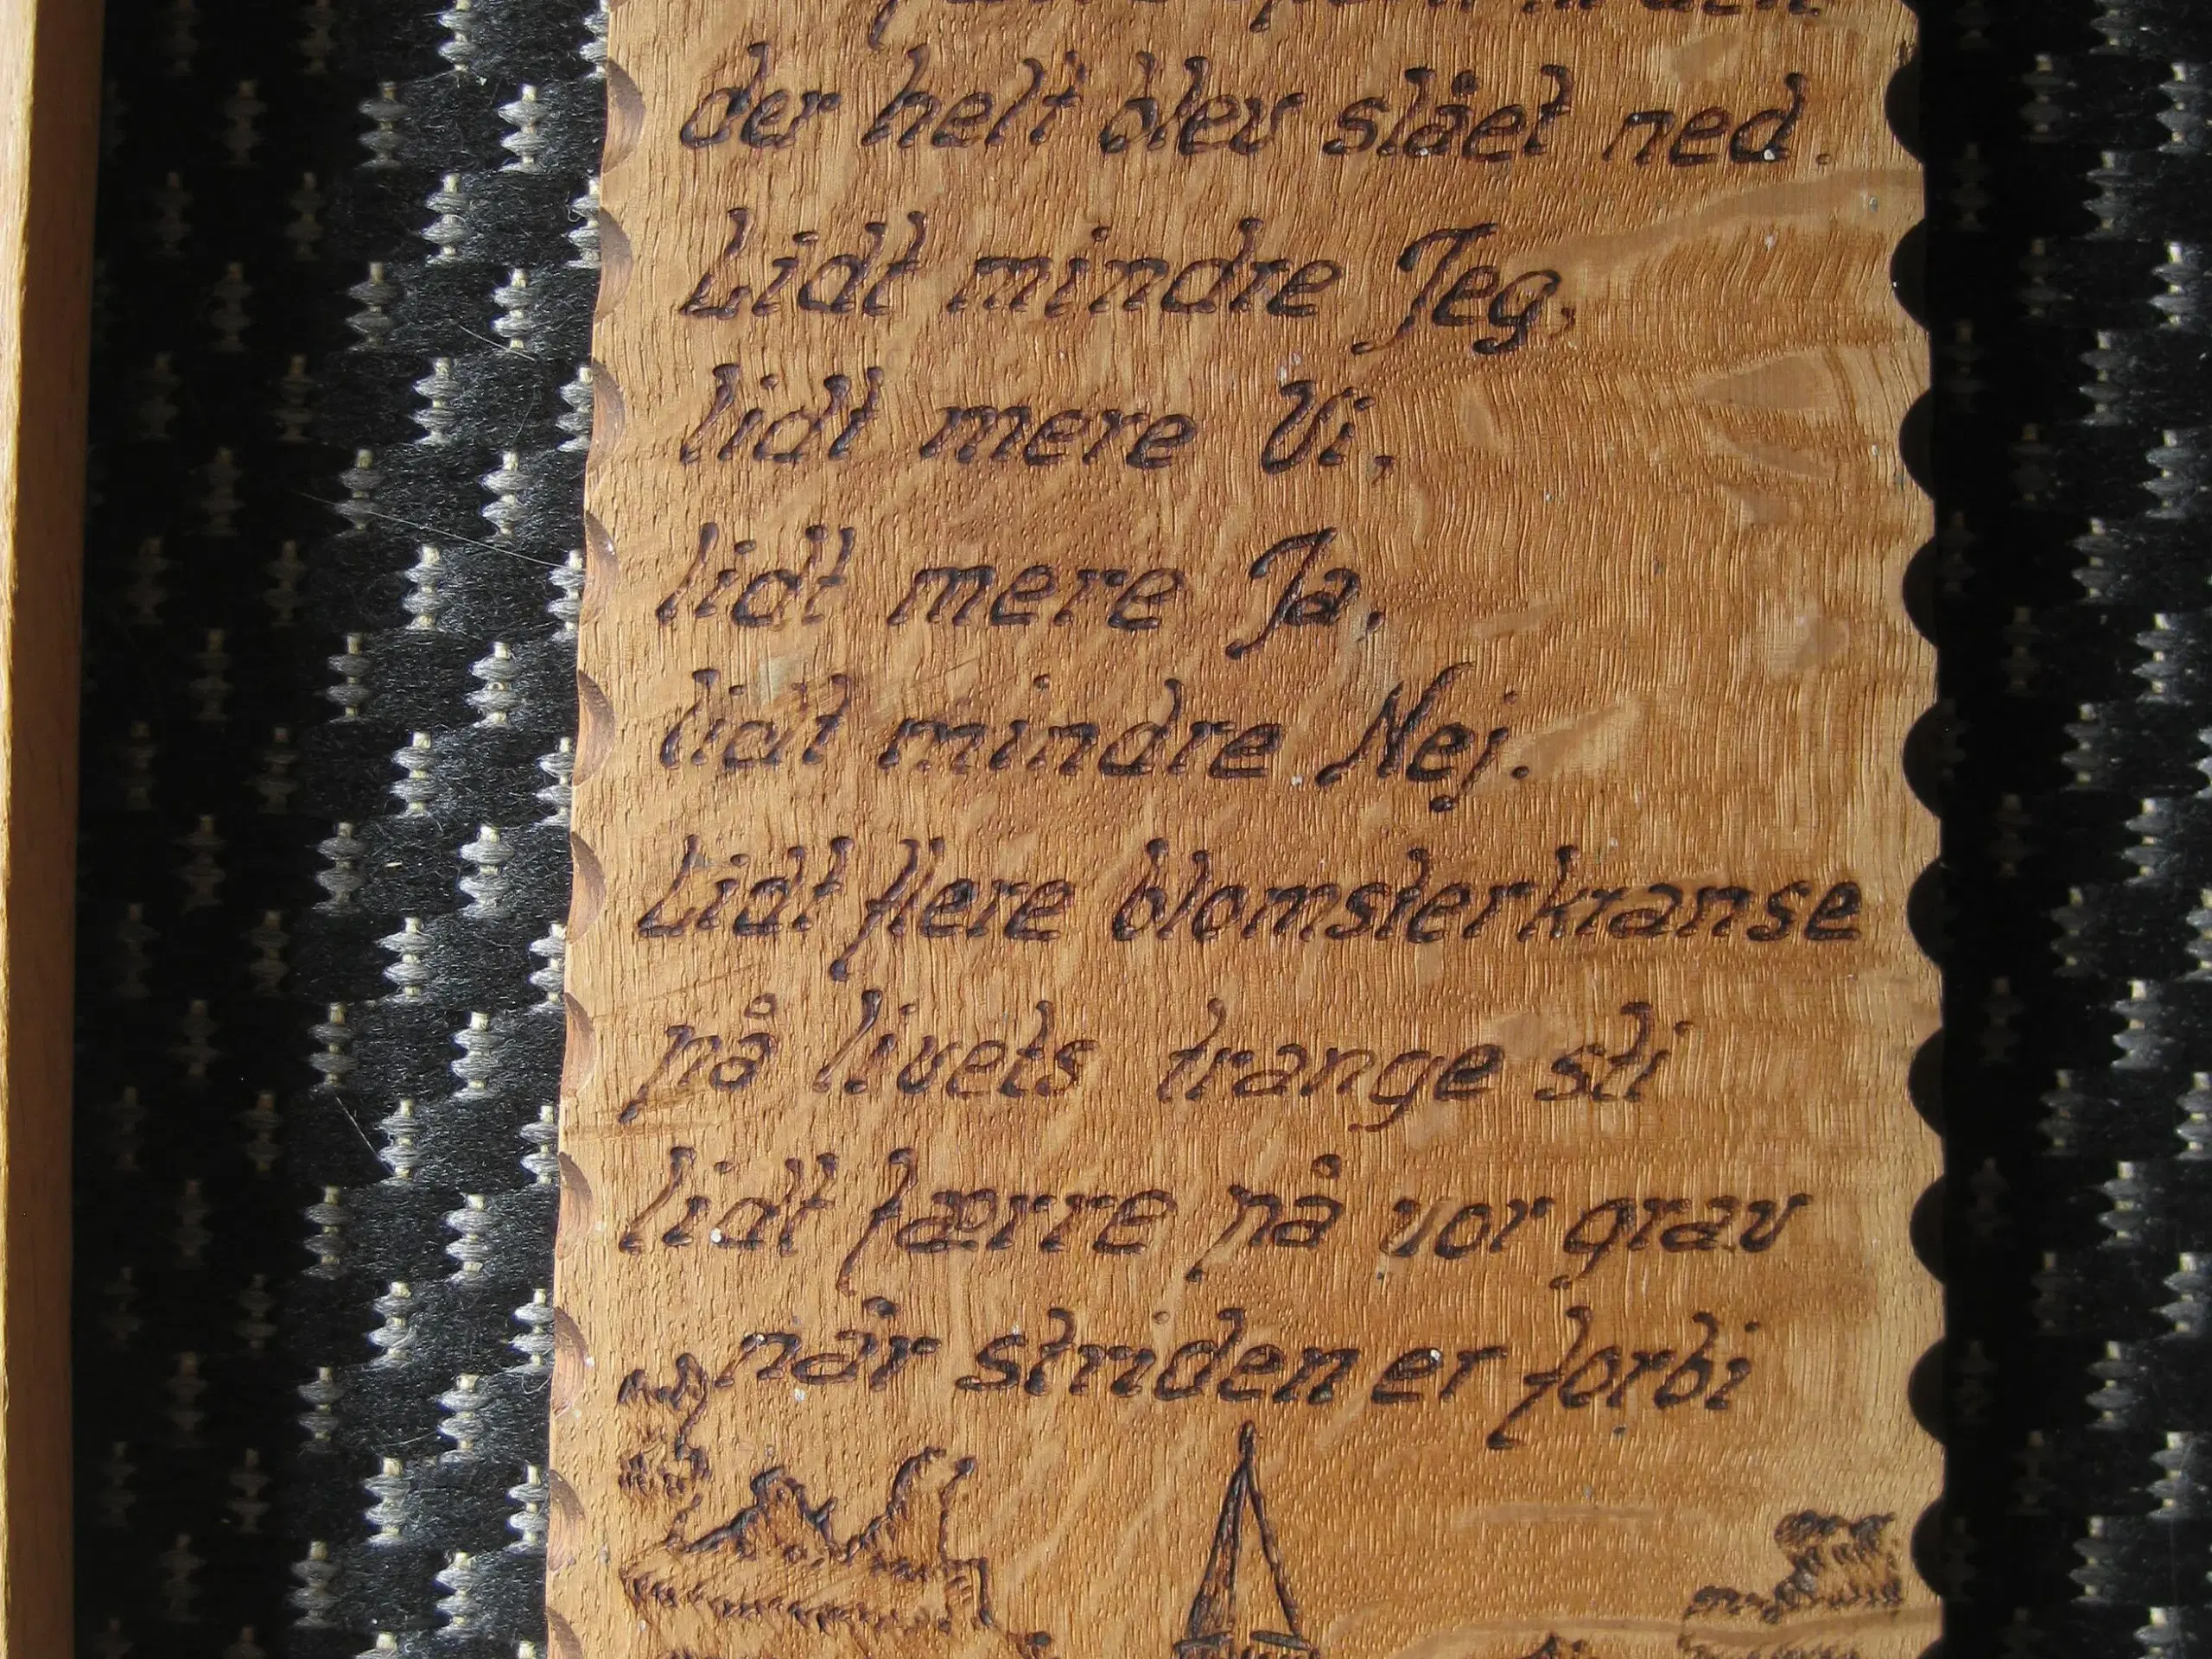 der helt blev slået ned.
Lidt mindre Jeg,
lidt mere Vi,
lidt mere Ja,
lidt mindre Nej.
Lidt flere blomsterkranse
på livets trange sti
lidt færre på vor grav
når striden er forbi